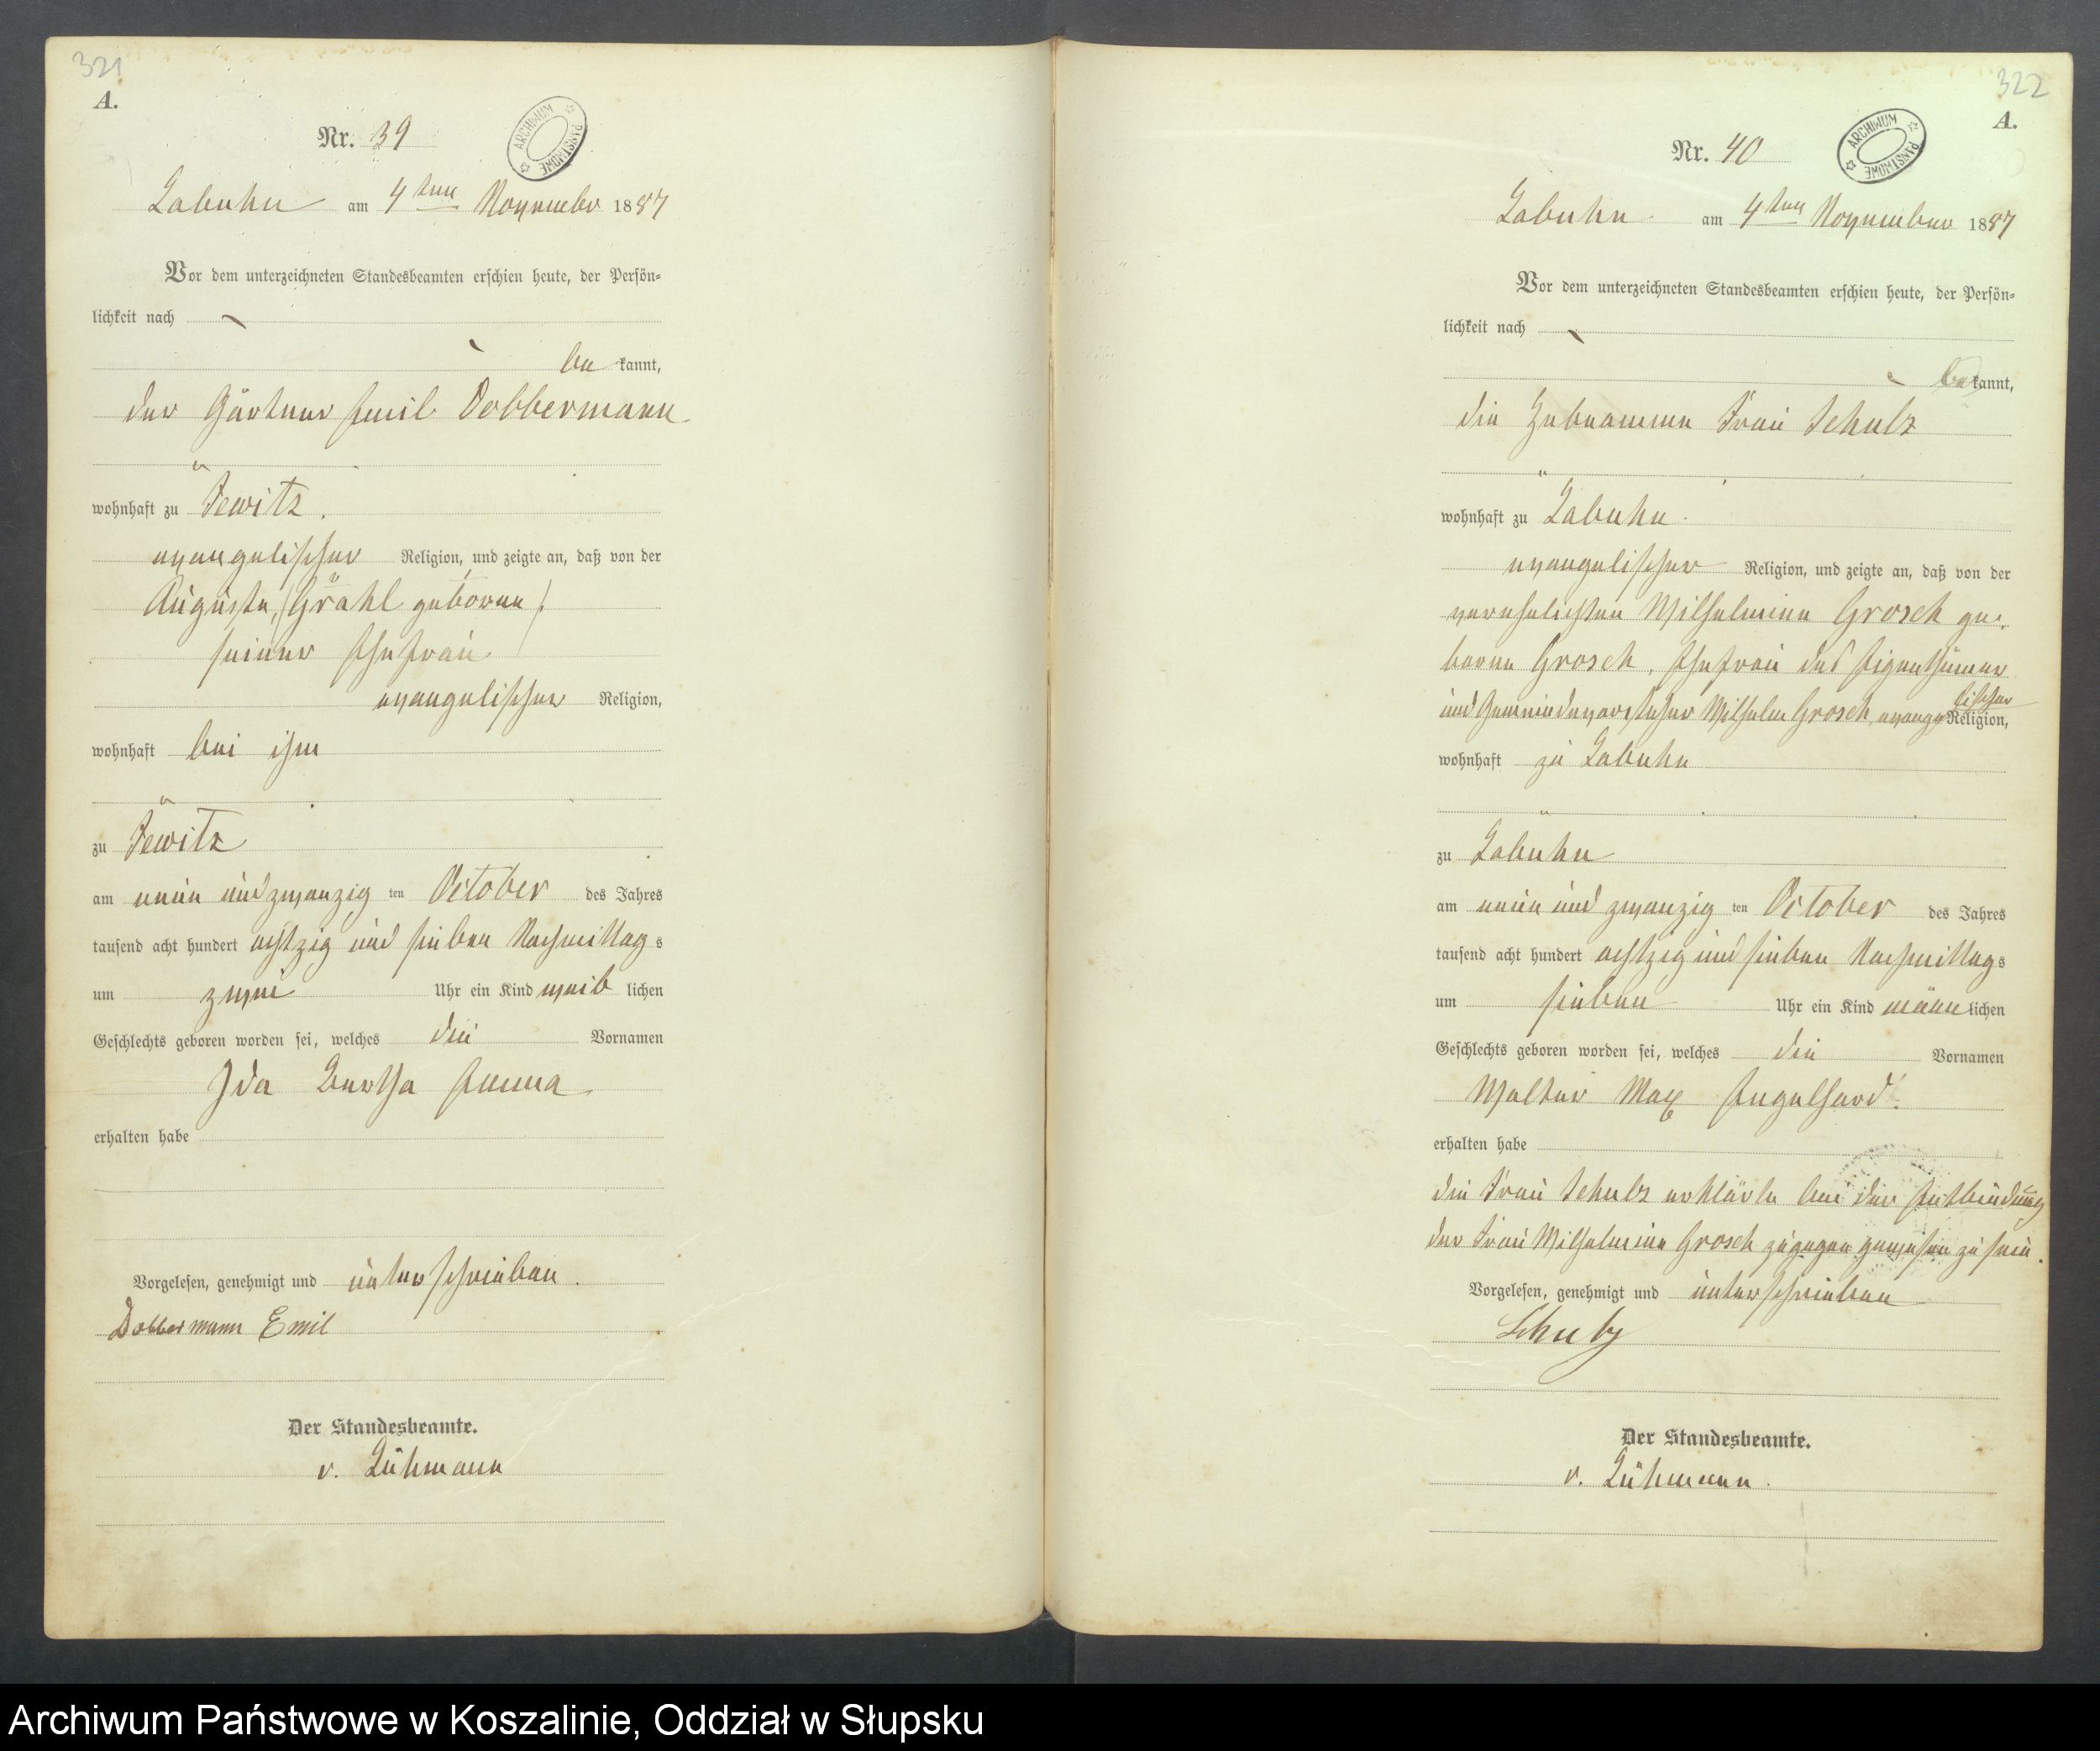 321
A.
Nr. 39
ARCHIWUM PAŃSTWOWE
Labuhn am 4ten November 1887
Vor dem unterzeichneten Standesbeamten erschien heute, der Persön-
lichkeit nach
be kannt,
der Gärtner Emil Dobbermann
wohnhaft zu Jewitz.
evangelischer Religion, und zeigte an, daß von der
Auguste, (Grähl geborene)
seiner Ehefrau
evangelischer Religion,
wohnhaft bei ihm
zu Jewitz
am neun und zwanzig ten October des Jahres
tausend acht hundert achtzig und sieben Nachmittag s
um zwei Uhr ein Kind weib lichen
Geschlechts geboren worden sei, welches die Vornamen
Ida Bertha Emma.
erhalten habe
Vorgelesen, genehmigt und unterschrieben.
Dobbermann Emil
Der Standesbeamte.
v. Lühmann
322
A.
Nr. 40
ARCHIWUM PAŃSTWOWE
Labuhn am 4ten November 1887
Vor dem unterzeichneten Standesbeamten erschien heute, der Persön-
lichkeit nach
be kannt,
die Hebeamme Frau Schulz
wohnhaft zu Labuhn.
evangelischer Religion, und zeigte an, daß von der
verehelichten Wilhelmine Grosch ge-
borene Grosch, Ehefrau des Eigenthümer
und Gemeindevorsteher Wilhelm Grosch, evangelischer Religion,
wohnhaft zu Labuhn
zu Labuhn
am neun und zwanzig ten October des Jahres
tausend acht hundert achtzig und sieben Nachmittag s
um sieben Uhr ein Kind männ lichen
Geschlechts geboren worden sei, welches die Vornamen
Walter Max Engelhard.
erhalten habe
die Frau Schulz erklärte bei der Entbindung
der Frau Wilhelmine Grosch zugegen gewesen zu sein.
Vorgelesen, genehmigt und unterschrieben
Schulz
Der Standesbeamte.
v. Lühmann.
Archiwum Państwowe w Koszalinie, Oddział w Słupsku